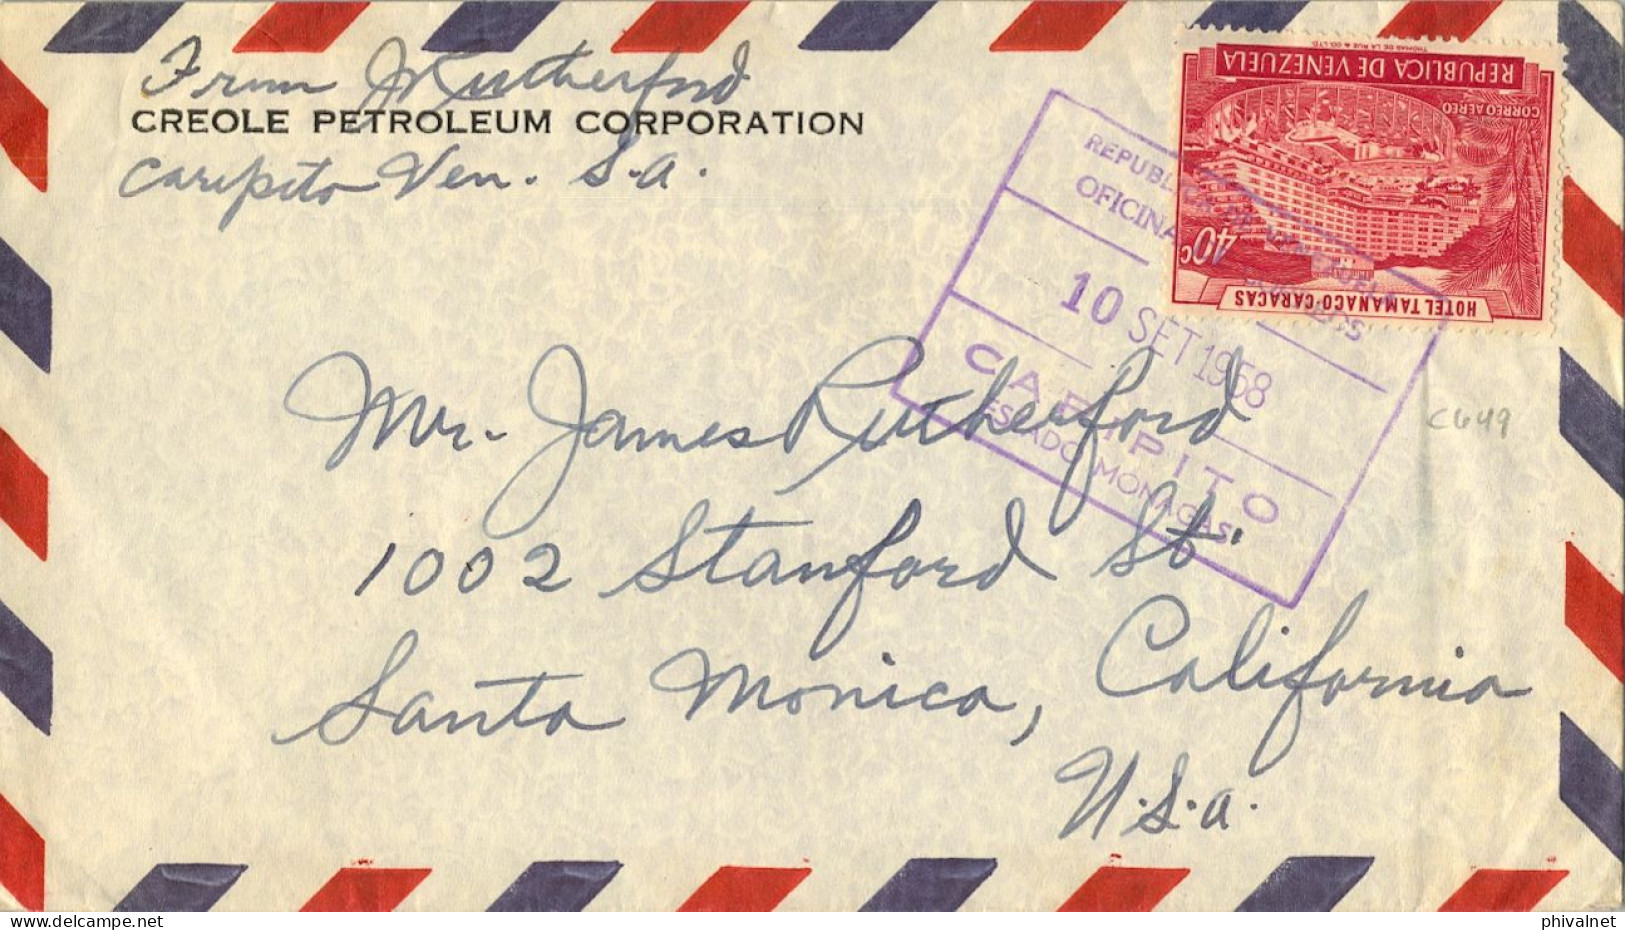 From J Rutherford
CREOLE PETROLEUM CORPORATION
Caripito Ven. S.A.
REPUBLICA DE VENEZUELA
THOMAS DE LA RUE & CO. LTD.
CORREO AEREO
40c
HOTEL TAMANACO-CARACAS
REPUBLICA DE VENEZUELA
OFICINA
10 SET 1958
CARIPITO
ESTADO MONAGAS
Mr. James Rutherford
1002 Stanford St.
Santa Monica, California
U.S.A.
C649
phivalnet